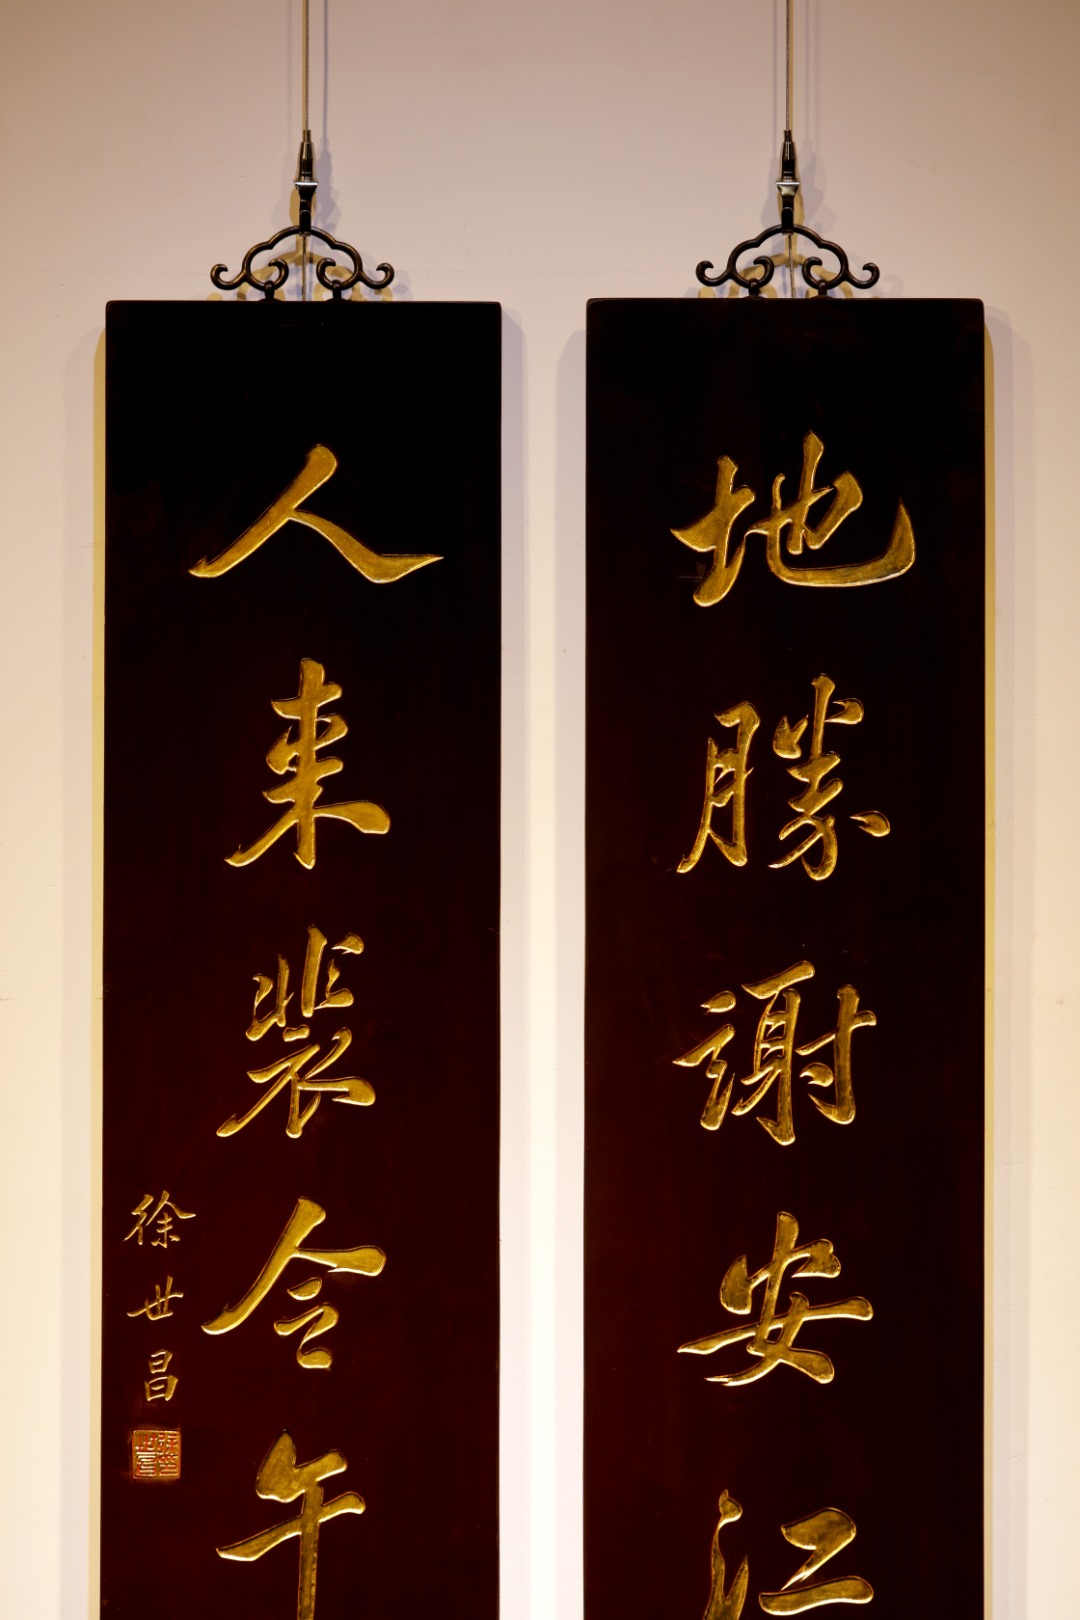 地勝謝安江
人来裴令午
徐世昌